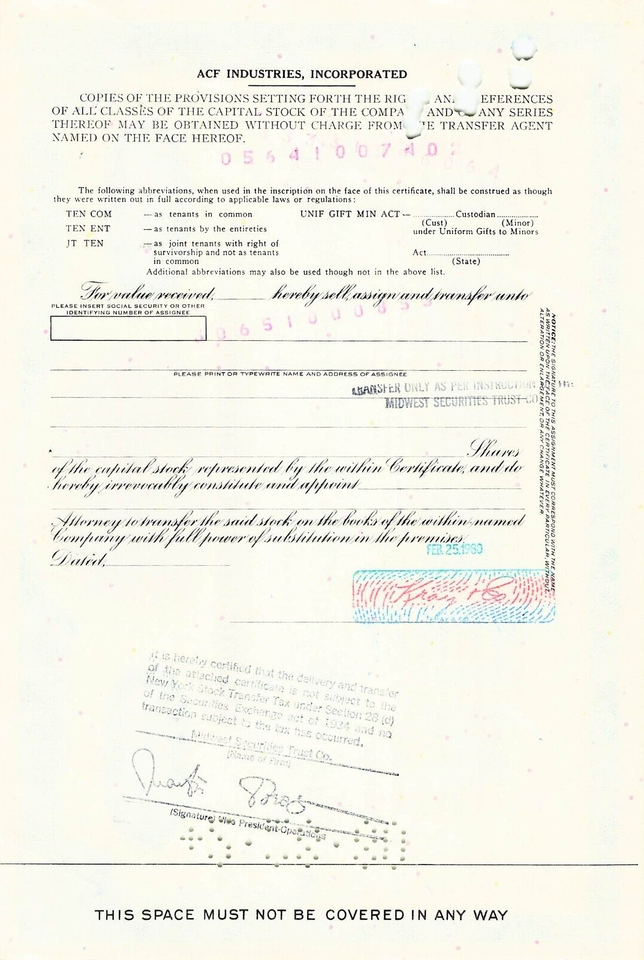 ACF INDUSTRIES, INCORPORATED
COPIES OF THE PROVISIONS SETTING FORTH THE RIG AN EFERENCES
OF ALL CLASSES OF THE CAPITAL STOCK OF THE COMPA AND O ANY SERIES
THEREOF MAY BE OBTAINED WITHOUT CHARGE FROM E TRANSFER AGENT
NAMED ON THE FACE HEREOF.
The following abbreviations, when used in the inscription on the face of this certificate, shall be construed as though
they were written out in full according to applicable laws or regulations:
TEN COM —as tenants in common UNIF GIFT MIN ACT— Custodian
(Cust) (Minor)
TEN ENT —as tenants by the entireties under Uniform Gifts to Minors
JT TEN —as joint tenants with right of Act
survivorship and not as tenants (State)
in common
Additional abbreviations may also be used though not in the above list.
For value received, hereby sell, assign and transfer unto
PLEASE INSERT SOCIAL SECURITY OR OTHER
IDENTIFYING NUMBER OF ASSIGNEE
PLEASE PRINT OR TYPEWRITE NAME AND ADDRESS OF ASSIGNEE
TRANSFER ONLY AS PER INSTRUCTION
MIDWEST SECURITIES TRUST CO
Shares
of the capital stock represented by the within Certificate, and do
hereby irrevocably constitute and appoint
Attorney to transfer the said stock on the books of the within-named
Company with full power of substitution in the premises.
FEB 25, 1980
Dated,
Kray & Co
NOTICE: THE SIGNATURE TO THIS ASSIGNMENT MUST CORRESPOND WITH THE NAME
AS WRITTEN UPON THE FACE OF THE CERTIFICATE IN EVERY PARTICULAR, WITHOUT
ALTERATION OR ENLARGEMENT, OR ANY CHANGE WHATEVER
It is hereby certified that the delivery and transfer
of the attached certificate is not subject to the
New York Stock Transfer Tax under Section 28 (d)
of the Securities Exchange act of 1934 and no
transaction subject to the tax has occurred.
Midwest Securities Trust Co.
(Name of Firm)
(Signature) Vice President-Operations
THIS SPACE MUST NOT BE COVERED IN ANY WAY